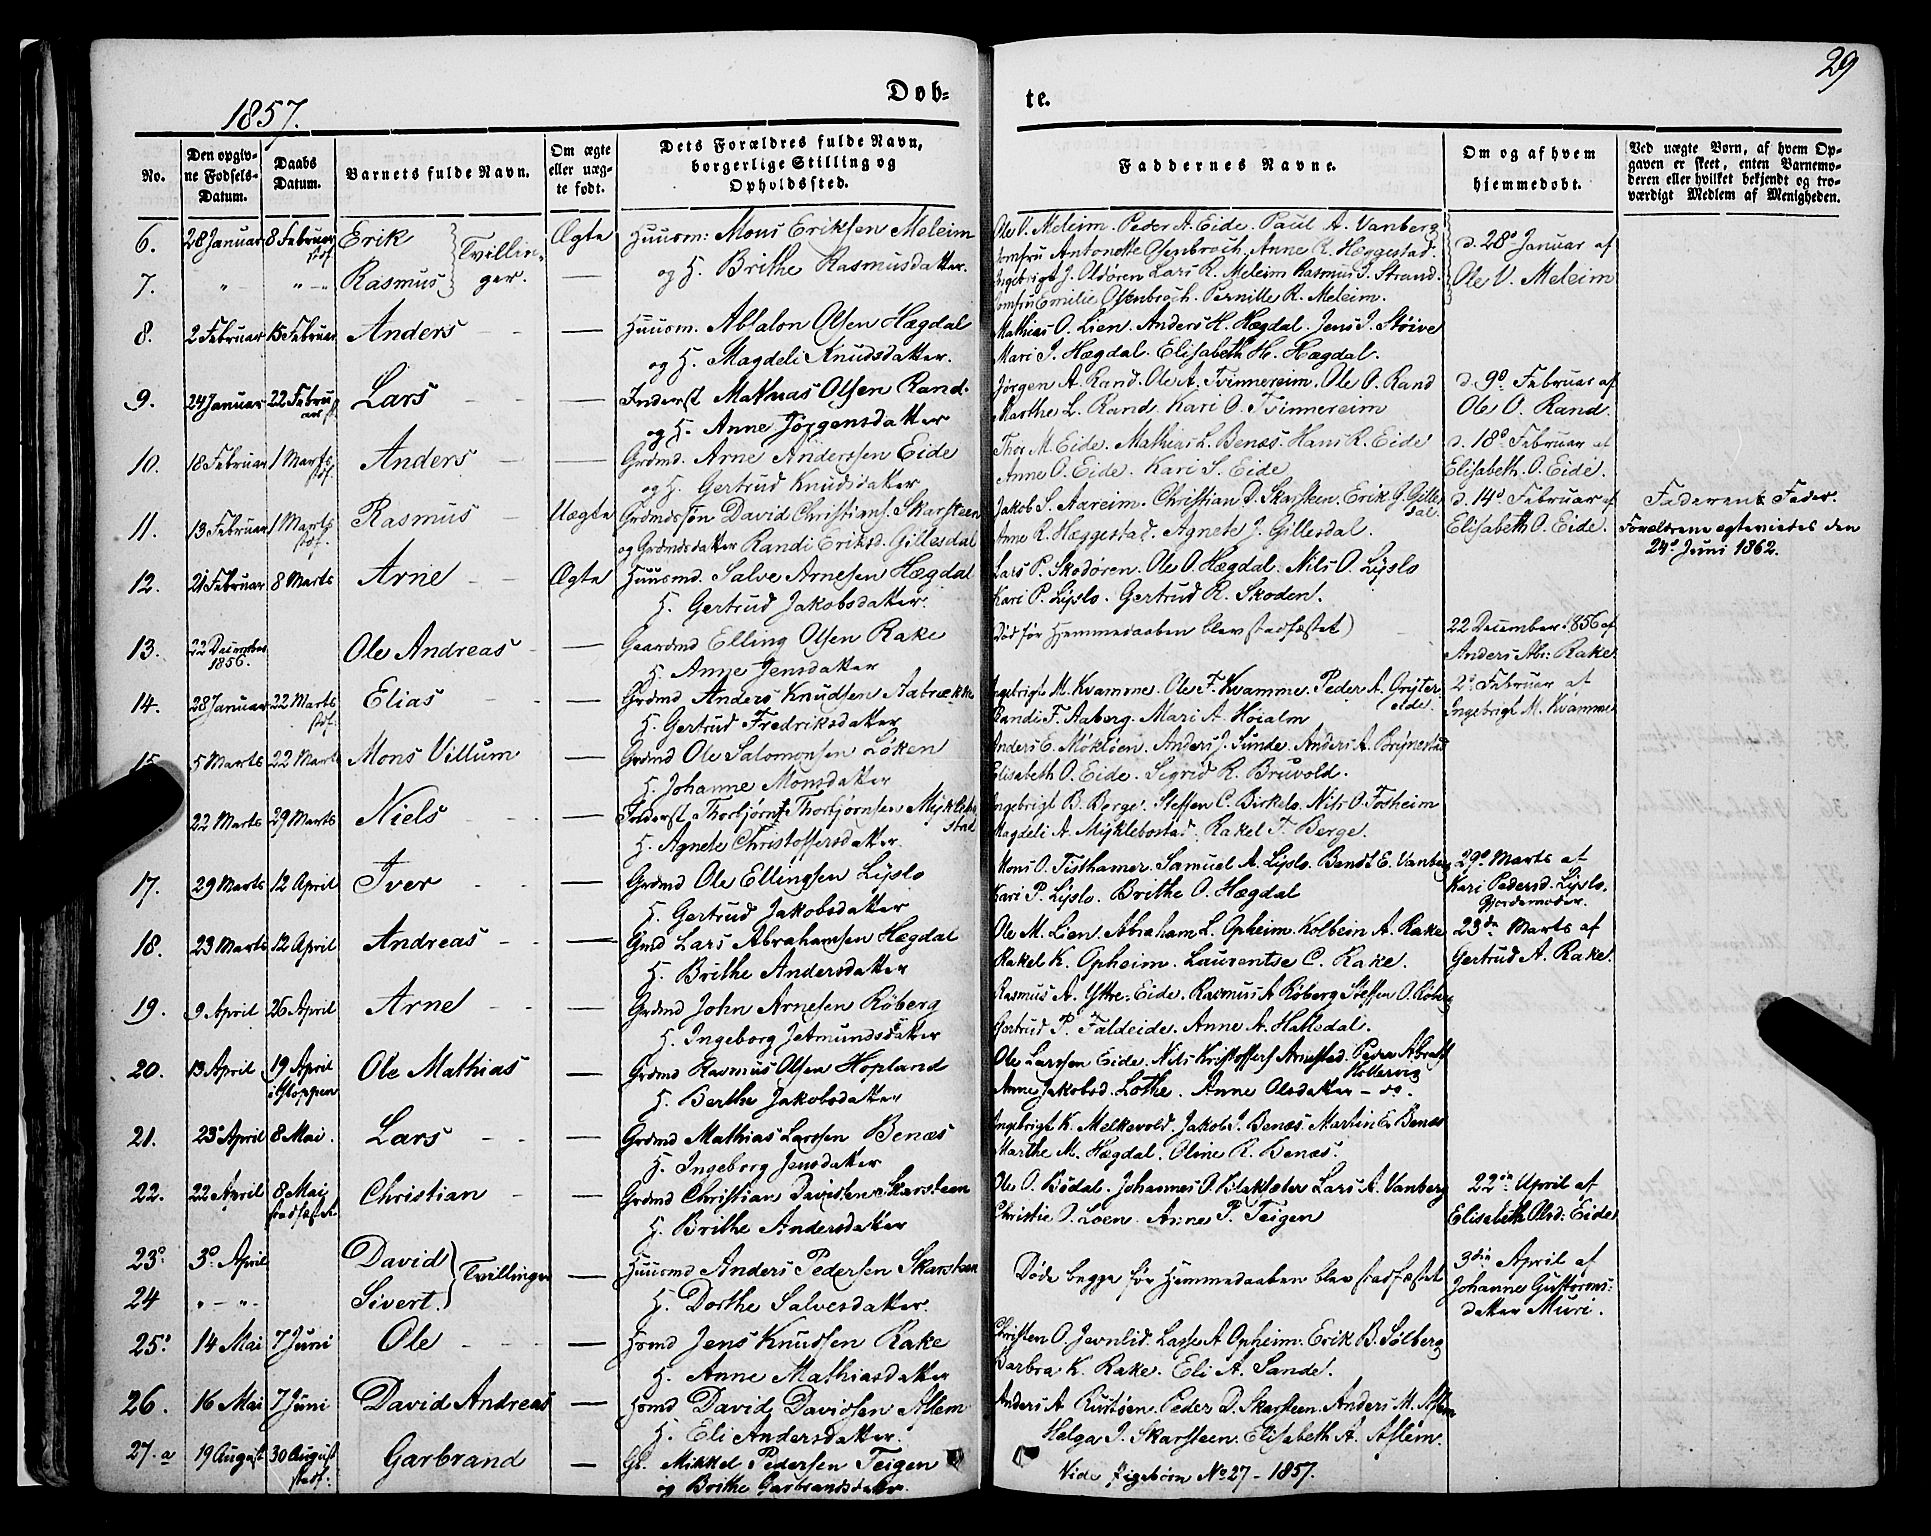 29
1857.
Døb-
te.
No.
Den opgiv-
ne Fødsels-
Datum.
Daabs
Datum.
Barnets fulde Navn.
Om ægte
eller uæg-
te født.
Dets Forældres fulde Navn,
borgerlige Stilling og
Opholdssted.
Faddernes Navne.
Om og af hvem
hjemmedøbt.
Ved uægte Børn, af hvem Op-
gaven er skeet, enten Barnemo-
deren eller hvilket bekjendt og tro-
værdigt Medlem af Menigheden.
6. 28 Januar 8 Februar Erik Tvillin- Ægte Huusm: Mons Eriksen Meleim Ole V. Meleim. Peder A. Eide. Paul A. Vanberg d. 28de Januar af
stdf. og H. Brithe Rasmusdatter. Jomfru Antonette Osenbroch. Anne R. Heggestad. Ole V. Meleim
7. " " - " Rasmus ger. — Ingebrigt J. Oldøren Lars R. Meleim Rasmus J. Strand.
Jomfru Emilie Osenbroch. Pernille R. Meleim.
8. 2 Februar 15 Februar Anders — Huusm. Absalon Olsen Hægdal Mathias O. Lien. Anders H. Hægdal. Jens J. Støive
og H. Magdeli Knudsdatter. Mari J. Hægdal. Elisabeth H. Hægdal.
9. 24 Januar 22 Febru- Lars — Inderst Mathias Olsen Rand. Jørgen A. Rand. Ole A. Tvinnereim. Ole O. Rand d. 9de Februar af
ar st. og H. Anne Jørgensdatter Marthe L. Rand. Kari O. Tvinnereim Ole O. Rand.
10. 18 Februar 1 Marts Anders — Grdmd. Arne Anderssen Eide Thor M. Eide. Mathias L. Benæs. Hans R. Eide d. 18de Februar af
stdf. og H. Gertrud Knudsdatter Anne O. Eide. Kari S. Eide Elisabeth O. Eide.
11. 13 Februar 1 Marts Rasmus — Uægte Grdmdssøn David Christians. Skarsteen Jakob S. Aareim. Christian D. Skarsteen. Erik J. Gilles- d. 14de Februar af Faderens Fader.
stdf. og Grdmdsdatter Randi Eriksd. Gillesdal dal. Anne R. Heggestad. Agnete J. Gillesdal. Elisabeth O. Eide. Forældrene ægteviedes den
24de Juni 1862.
12. 21 Februar 8 Marts Arne Ægte Huusmd. Salve Arnesen Hægdal Lars P. Skodøren. Ole O. Hægdal. Nils O. Lyslo
H. Gertrud Jakobsdatter. Kari P. Lyslo. Gertrud R. Skoden.
13. 22 December Ole Andreas — Gaardmd Elling Olsen Rake Død før Hjemmedaaben blev stadfæstet) 22 December 1856 af
1856. H. Anne Jensdatter Anders Abr: Rake.
14. 28 Januar 22 Marts Elias — Grdmd Anders Knudsen Aabrække Ingebrigt M. Kvamme. Ole F. Kvamme. Peder A. Gryter- 2de Februar af
stdf. H. Gertrud Fredriksdatter eide. Randi F. Aaberg. Mari A. Hoialm Ingebrigt M. Kvamme
15. 5 Marts 22 Marts Mons Villum — Grdmd Ole Salomonsen Løken Anders E. Mokløen. Anders J. Sunde. Anders A. Brynestad
H. Johanne Monsdatter Elisabeth O. Eide. Sigrid R. Bruvold.
22 Marts 29 Marts Niels — Inderst Thorbjørn Thorbjørnsen Myklebo- Ingebrigt B. Berge. Steffen C. Birkelo. Nils O. Fosheim
stad H. Agnete Christoffersdatter. Magdeli A. Myklebostad. Rakel T. Berge.
17. 29 Marts 12 April Iver — Grdmd Ole Ellingsen Lyslo Mons O. Tisthamer. Samuel A. Lyslo. Bendt E. Vanberg 29de Marts af
H. Gertrud Jakobsdatter Kari P. Lyslo. Brithe O. Hægdal Kari Pedersd. Lyslo.
Gjordemoder.
18. 23 Marts 12 April Andreas — Gmd Lars Abrahamsen Hægdal Ole M. Lien. Abraham L. Opheim. Kolbein A. Rake 23de Marts af
H. Brithe Andersdatter Rakel K. Opheim. Laurentse C. Rake. Gertrud A. Rake.
19. 9 April 26 April Arne — Grdmd John Arnesen Røberg Rasmus A. Ytre-Eide. Rasmus A Røberg Steffen O. Røberg
H. Ingeborg Jetmundsdatter Gertrud P. Faldeide. Anne A. Hakedal.
20. 13 April 19 April Ole Mathias — Grdmd Rasmus Olsen Hopland Ole Larssen Eide. Nils Kristoffers Arnestad. Peder Abrah
i Gloppen H. Berthe Jakobsdatter Hollervig Anne Jakobsd. Lothe. Anne Olsdatter - do.
21. 23de April 8 Mai. Lars — Grdmd Mathias Larssen Benæs Ingebrigt K. Melkevold. Jakob J. Benæs. Martin E. Benæs
H. Ingeborg Jensdatter Marthe M. Hægdal. Oline R. Benæs.
22. 22 April 8 Mai Christian — Grdmd Christian Davidsen Skarsteen Ole O. Bødal. Johannes O. Flaksæter Lars A. Vanberg 22de April af
stadfæstet. H. Brithe Andersdatter Christie O. Loen. Anne P. Teigen Elisabeth Olsd: Eide
23. 3de April David Tvillinger — Huusmd Anders Pedersen Skarsteen Døde begge før Hjemmedaaben blev stadfæstet 3die April af
24 " - " - Sivert. H. Dorthe Salvesdatter. Johanne Gustorms-
datter Muri.
25. 14 Mai 7 Juni Ole — Hsmd Jens Knudsen Rake Christen O. Jevnlid. Lasse A Opheim. Erik B. Solberg
H. Anne Mathiasdatter Barbra K. Rake. Eli A. Sande.
26. 16 Mai 7 Juni David Andreas — Hsmd David Davidsen Aflem Anders A Rustøen. Peder D. Skarsteen. Anders M. Aflem
H. Eli Andersdatter. Helga J. Skarsteen. Elisabeth A. Aflem.
27. a 19 August 30 August Garbrand — G. Mikkel Pedersen Teigen Vide Pigebørn No 27 - 1857.
stadf. og Brithe Garbrandsdatter.